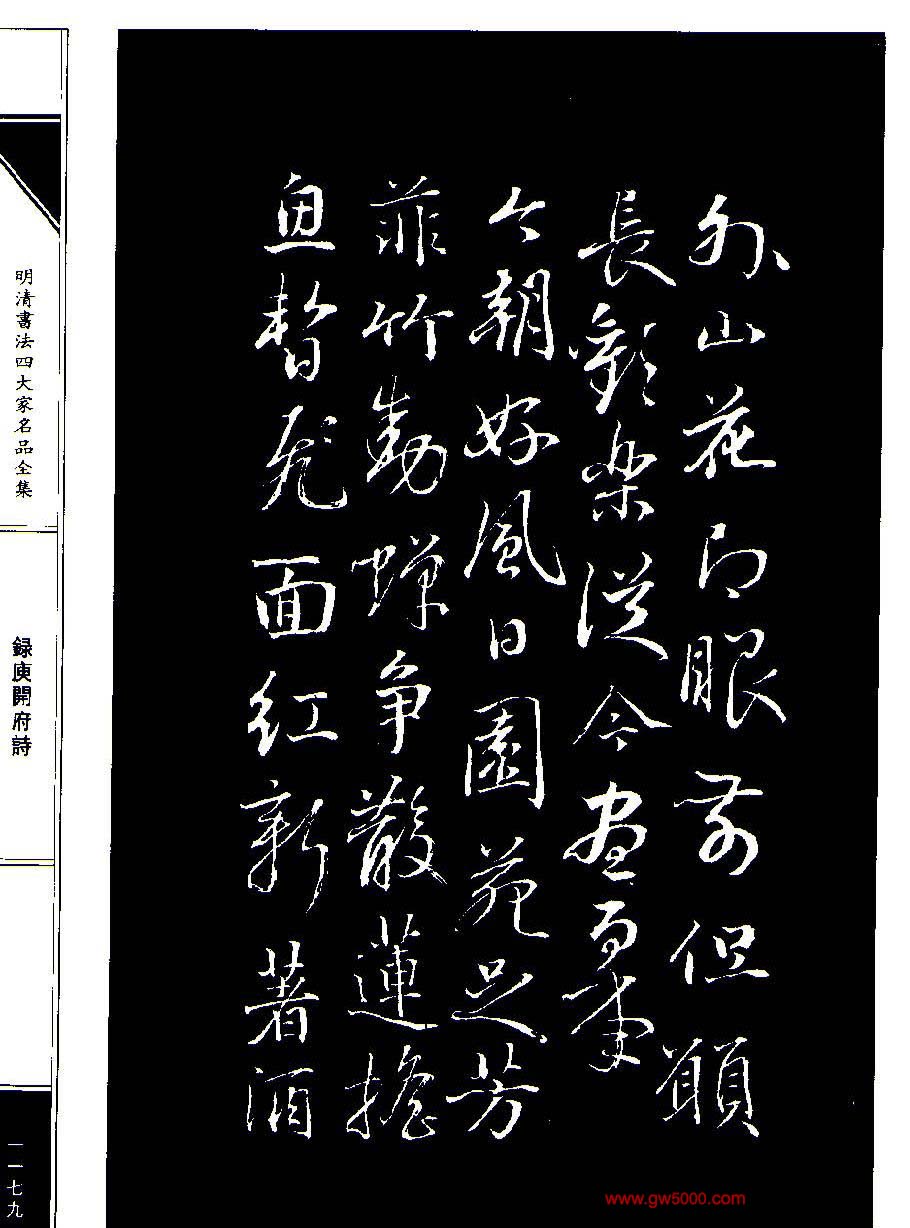 外山花即眼前但願
長歡樂從今盡百年
今朝好風日園苑足芳
菲竹動蟬爭散蓮搖
魚暫飛面紅新著酒
明清書法四大家名品全集
録庾開府詩
一一七九
www.gw5000.com